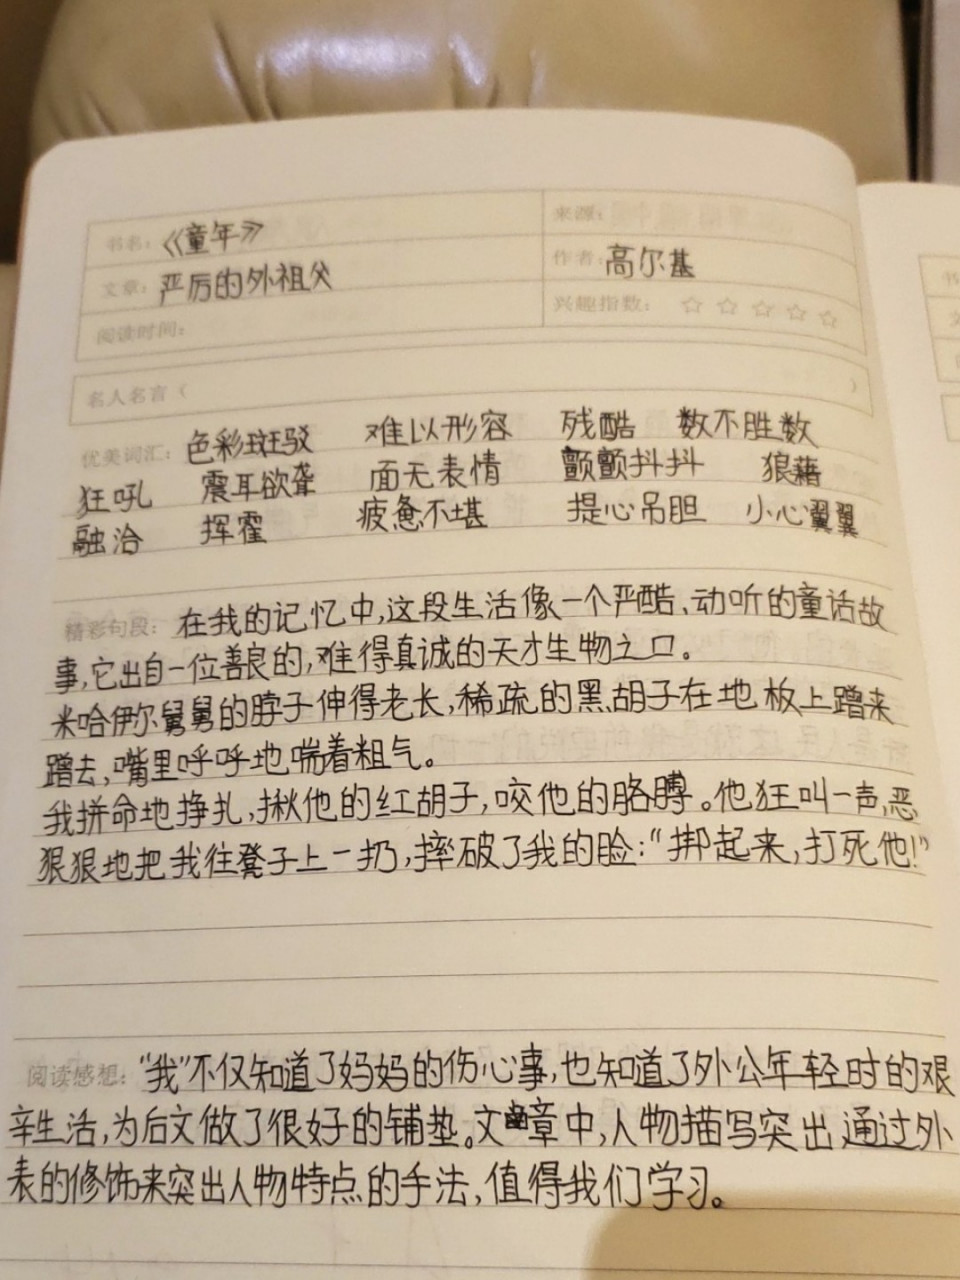 书名：《童年》 来源：
文章：严厉的外祖父 作者：高尔基
阅读时间： 兴趣指数：☆☆☆☆☆
名人名言（ ）
优美词汇：色彩斑驳 难以形容 残酷 数不胜数
狂吼 震耳欲聋 面无表情 颤颤抖抖 狼藉
融洽 挥霍 疲惫不堪 提心吊胆 小心翼翼
精彩句段：在我的记忆中，这段生活像一个严酷、动听的童话故
事，它出自一位善良的，难得真诚的天才生物之口。
米哈伊尔舅舅的脖子伸得老长，稀疏的黑胡子在地板上蹭来
蹭去，嘴里呼呼地喘着粗气。
我拼命地挣扎，揪他的红胡子，咬他的胳膊。他狂叫一声，恶
狠狠地把我往凳子上一扔，摔破了我的脸：“绑起来，打死他！”
阅读感想：“我”不仅知道了妈妈的伤心事，也知道了外公年轻时的艰
辛生活，为后文做了很好的铺垫。文章中，人物描写突出，通过外
表的修饰来突出人物特点的手法，值得我们学习。